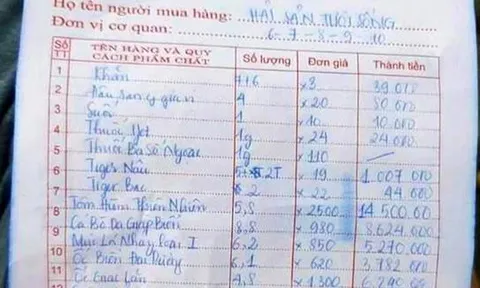 Họ tên người mua hàng: HẢI SẢN THỜI SỐNG
Đơn vị cơ quan: 6-7-8-9-10
Số TT TÊN HÀNG VÀ QUY CÁCH PHẨM CHẤT Số lượng Đơn giá Thành tiền
1 Khăn 7+6 ×3 39.000
2 4 ×20 80 000
3 Suối 1 ×10 10.000
4 Thuốc Jet 1g ×24 24.000
5 Thuốc Ba Số Ngoại 1g ×110
6 Tiger Nâu ×19 1.007 000
7 Tiger Bạc 2 ×22 44 000
8 Tôm Hùm Thiên Nhiên 5,8 ×2500 14 500.00
9 Cá Bò Da Giáp Biển 8,8 ×980 8.624.000
10 Mực Lá Nháy loại I 6,2 ×850 5.270.000
11 Ốc Biển Đại Dương 6,1 ×620 3.782 000
12 Ốc Gai Lớn 4,8 ×1300